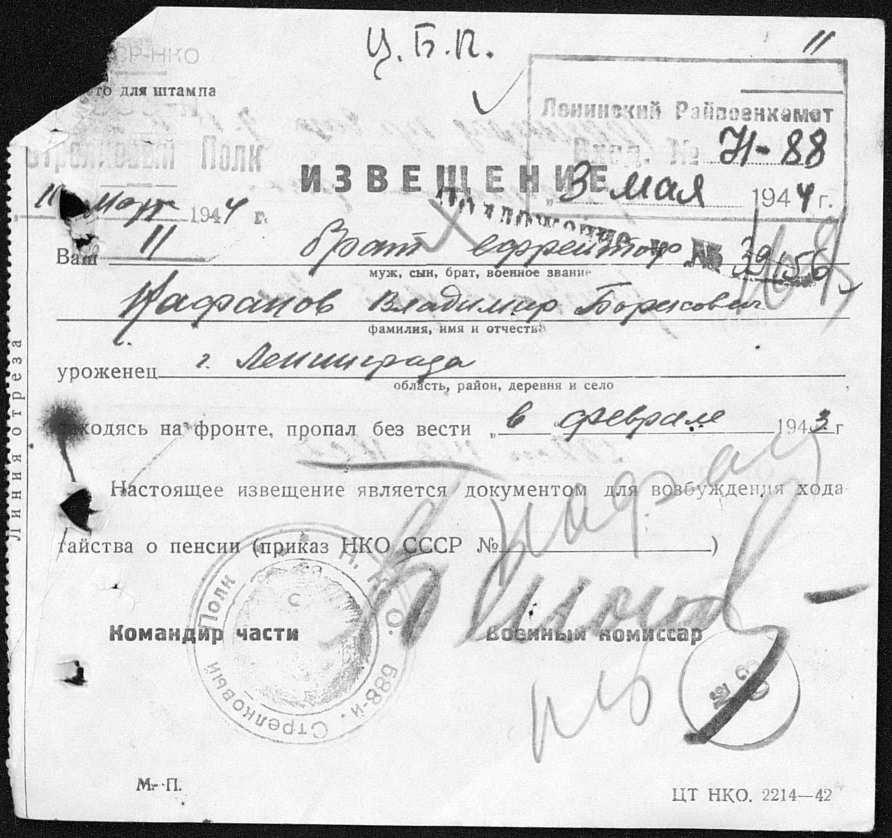 Ц.Б.П.
11
СР-НКО
то для штампа
Ленинский Райвоенкомат
Вход. № Н-88
Стрелковый Полк
ИЗВЕЩЕНИЕ
„3 мая 1944 г.
11 март 1944 г.
Ваш брат ефрейтор
№
муж, сын, брат, военное звание
Кафанов Владимир Борисович
фамилия, имя и отчество
уроженец г. Ленинграда
область, район, деревня и село
находясь на фронте, пропал без вести „в феврале 1943 г
Настоящее извещение является документом для возбуждения хода-
тайства о пенсии (приказ НКО СССР № )
Линия отреза
Н.К.О. 688-й. Стрелковый Полк
Командир части
Военный комиссар
М. П.
ЦТ НКО. 2214—42